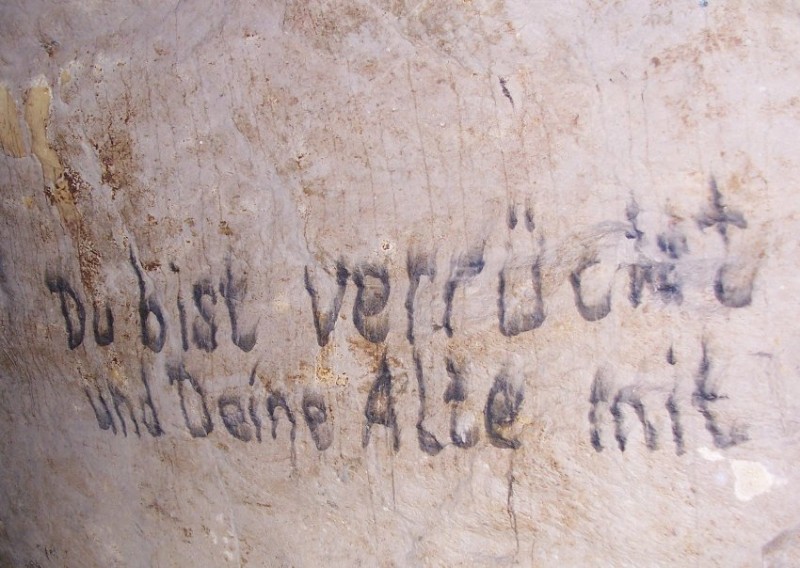 Du bist verrückt
und Deine Alte mit